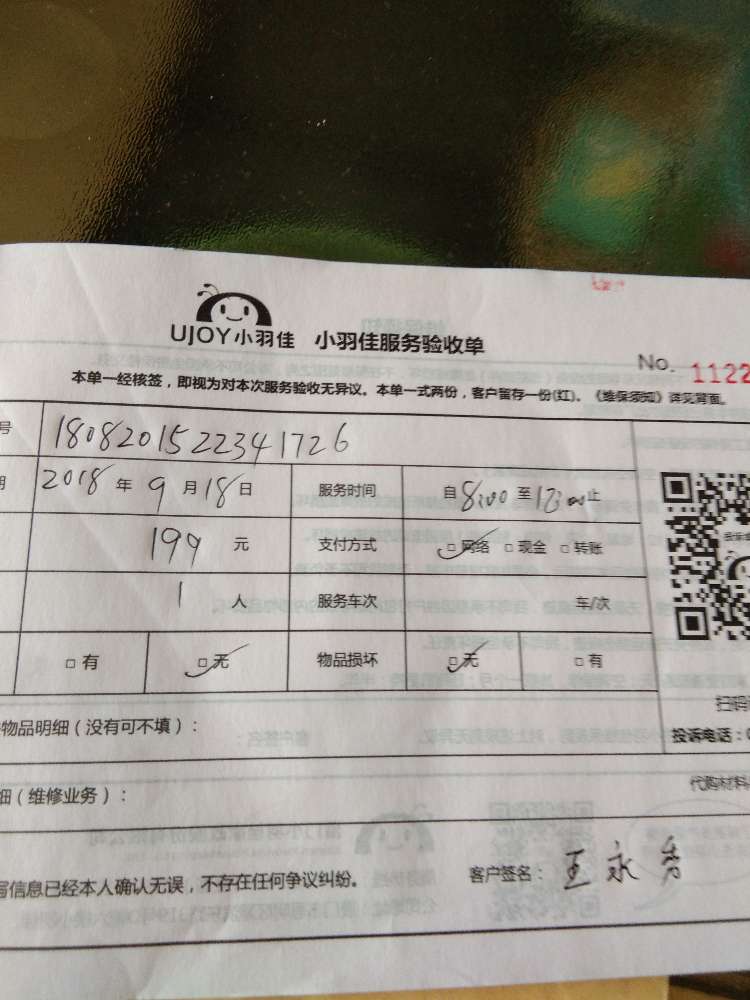 UJOY小羽佳 小羽佳服务验收单
No. 1122
本单一经核签，即视为对本次服务验收无异议。本单一式两份，客户留存一份(红)。《维保须知》详见背面。
号 1808201522341726
期 2018 年 9 月 18 日 服务时间 自 8:00 至 12:00 止
199 元 支付方式 □网络 □现金 □转账
1 人 服务车次 车/次
□有 □无 物品损坏 □无 □有
物品明细（没有可不填）：
扫码
投诉电话：0
细（维修业务）：
代购材料
写信息已经本人确认无误，不存在任何争议纠纷。 客户签名：王永秀